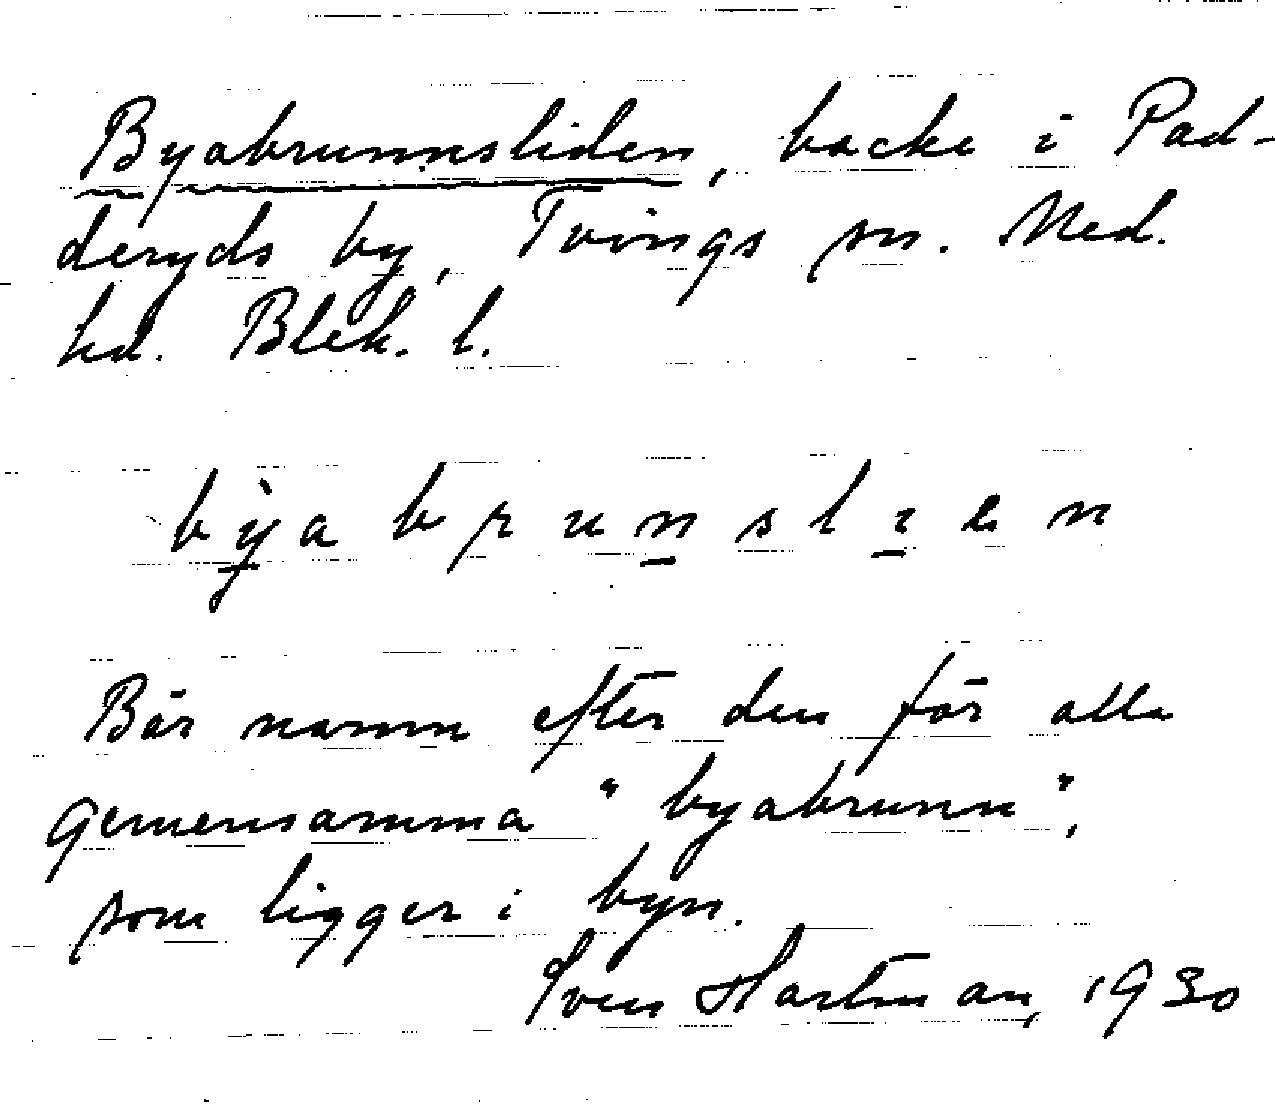 Byabrunnsliden, backe i Pad-
deryds by, Tvings sn. Med.
hd. Blek. l.
bỳabrunslıen
Bär namn efter den för alla
gemensamma "byabrunn",
som ligger i byn.
Sven Hartman, 1930